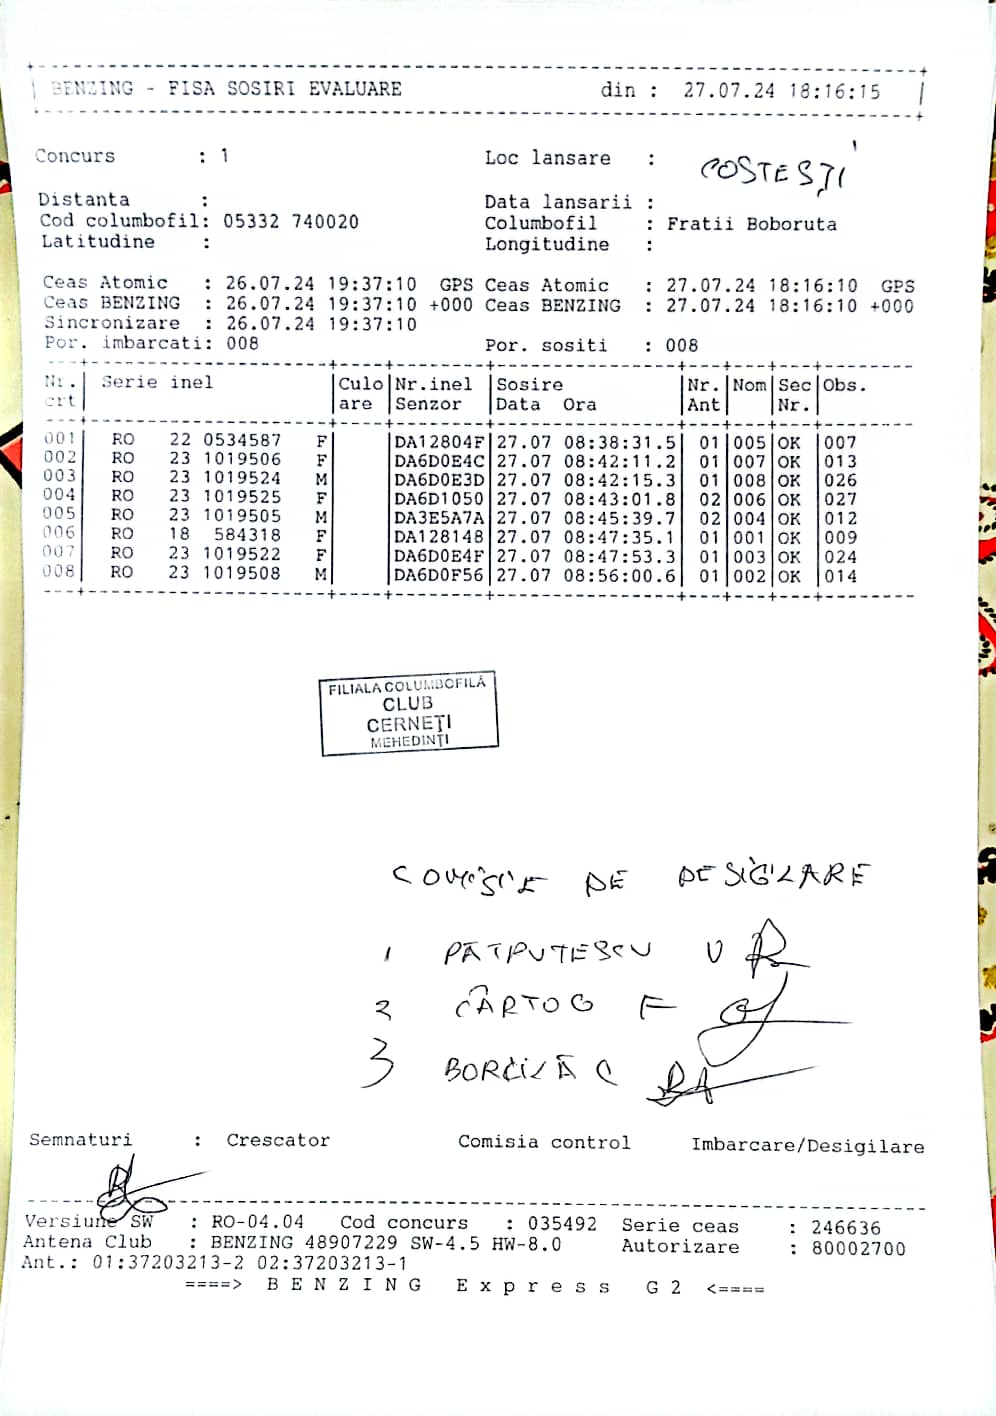 BENZING - FISA SOSIRI EVALUARE din : 27.07.24 18:16:15
Concurs : 1 Loc lansare : COSTEȘTI
Distanta : Data lansarii :
Cod columbofil: 05332 740020 Columbofil : Fratii Boboruta
Latitudine : Longitudine :
Ceas Atomic : 26.07.24 19:37:10 GPS Ceas Atomic : 27.07.24 18:16:10 GPS
Ceas BENZING : 26.07.24 19:37:10 +000 Ceas BENZING : 27.07.24 18:16:10 +000
Sincronizare : 26.07.24 19:37:10
Por. imbarcati: 008 Por. sositi : 008
Nr. Serie inel Culo Nr.inel Sosire Nr. Nom Sec Obs.
crt are Senzor Data Ora Ant Nr.
001 RO 22 0534587 F DA12804F 27.07 08:38:31.5 01 005 OK 007
002 RO 23 1019506 F DA6D0E4C 27.07 08:42:11.2 01 007 OK 013
003 RO 23 1019524 M DA6D0E3D 27.07 08:42:15.3 01 008 OK 026
004 RO 23 1019525 F DA6D1050 27.07 08:43:01.8 02 006 OK 027
005 RO 23 1019505 M DA3E5A7A 27.07 08:45:39.7 02 004 OK 012
006 RO 18 584318 F DA128148 27.07 08:47:35.1 01 001 OK 009
007 RO 23 1019522 F DA6D0E4F 27.07 08:47:53.3 01 003 OK 024
008 RO 23 1019508 M DA6D0F56 27.07 08:56:00.6 01 002 OK 014
FILIALA COLUMBOFILĂ
CLUB
CERNEȚI
MEHEDINȚI
COMISIE DE DESIGILARE
1 PĂTRUTESCU V
2 CÂRTOG F
3 BORCILĂ C
Semnaturi : Crescator Comisia control Imbarcare/Desigilare
Versiune SW : RO-04.04 Cod concurs : 035492 Serie ceas : 246636
Antena Club : BENZING 48907229 SW-4.5 HW-8.0 Autorizare : 80002700
Ant.: 01:37203213-2 02:37203213-1
====> B E N Z I N G E x p r e s s G 2 <====